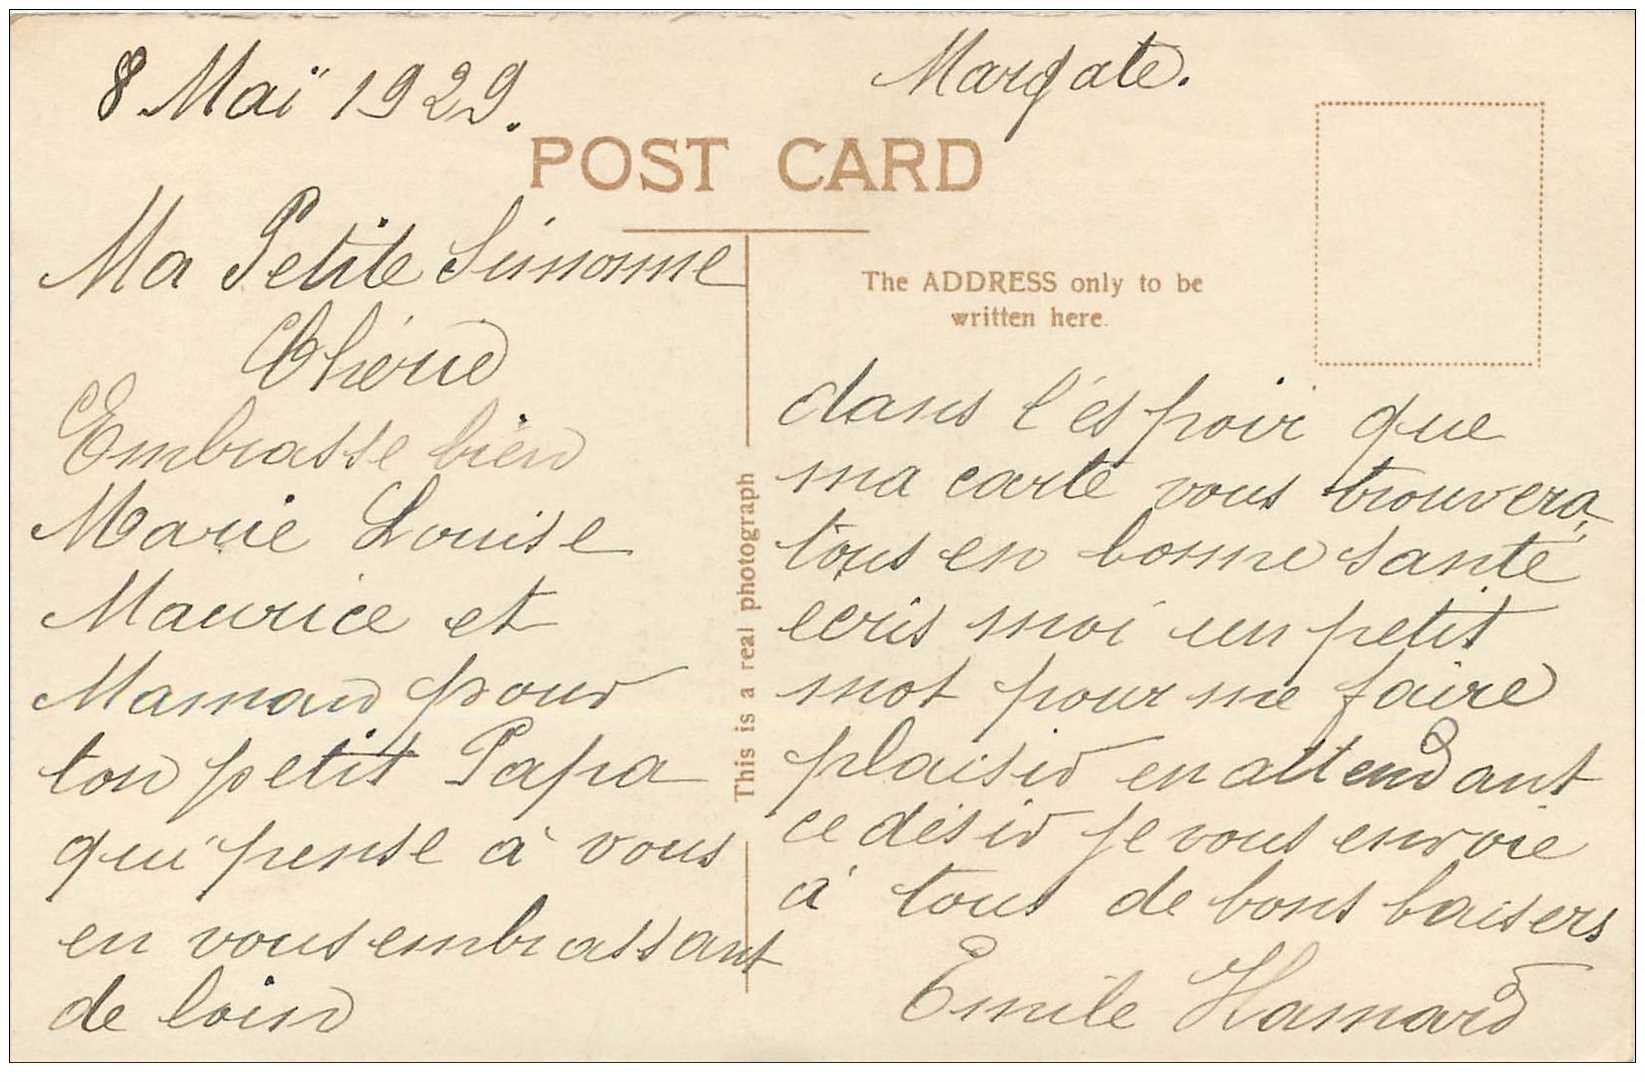 8 Maï 1929.
Margate.
POST CARD
Ma Petite Simonne
Chérie
Embrasse bien
Marie Louise
Maurice et
Maman pour
ton petit Papa
qui pense à vous
en vous embrassant
de loin
This is a real photograph
The ADDRESS only to be
written here.
dans l'éspoir que
ma carte vous trouvera
tous en bonne santé
ecris moi un petit
mot pour me faire
plaisir en attendant
ce désir je vous envoie
à tous de bons baisers
Emile Hamard